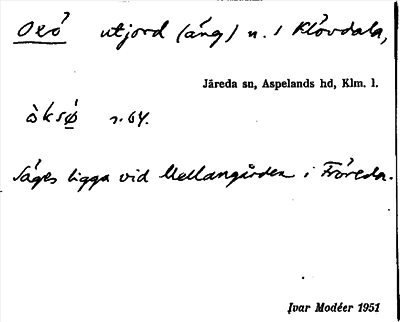 Oxö utjord (äng) n. 1 Klövdala,
Järeda sn, Aspelands hd, Klm. l.
òksö́ s. 64.
Säges ligga vid Mellangården i Fröreda.
Ivar Modéer 1951